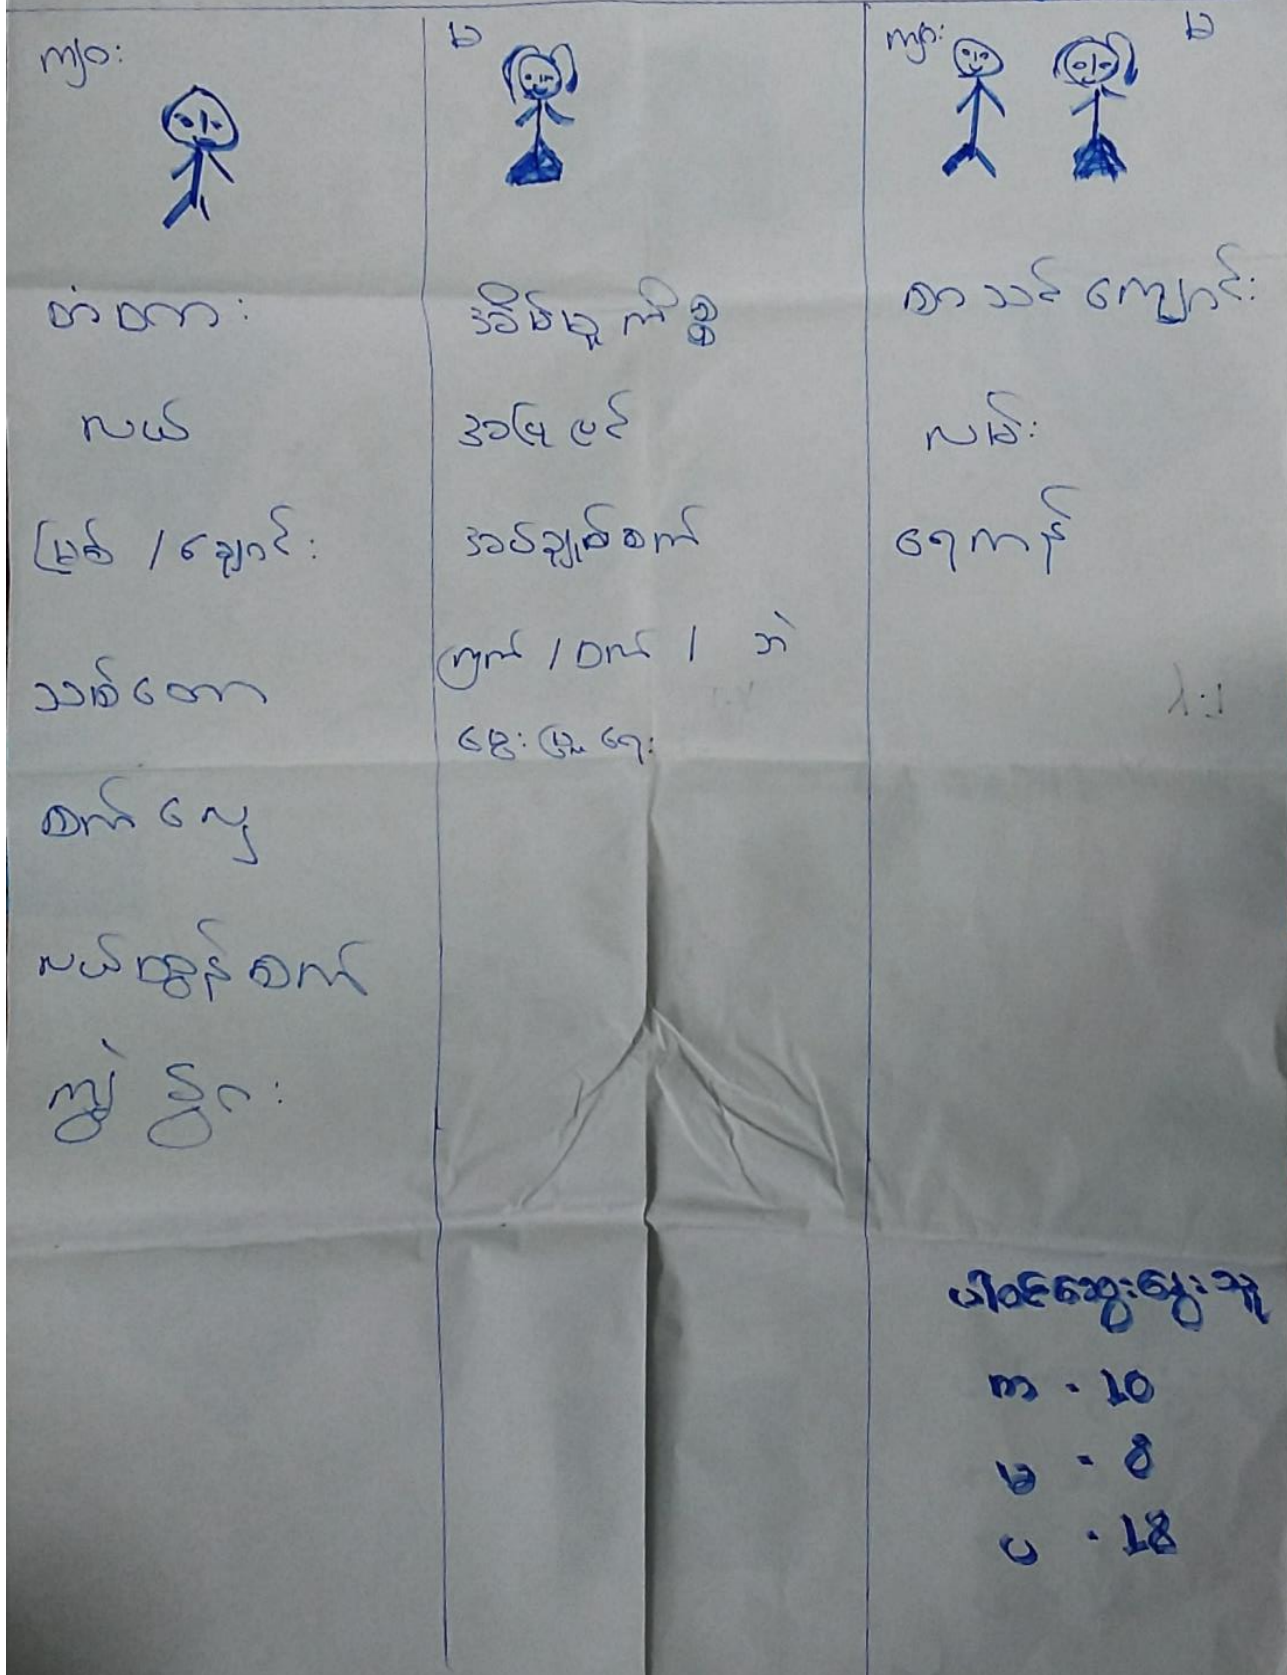 ကျား
တံတား
လယ်
မြစ် / ချောင်း
သစ်တော
စက်လှေ
လယ်ထွန်စက်
ကျွဲ နွား
မ
အိမ်မှုကိစ္စ
အမြုမင်
အပ်ချုပ်စက်
ကြက် / ဝက် / ဘဲ
မွေးမြူရေး
ကျား မ
စာသင်ကျောင်း
လမ်း
ရေကန်
ပါဝင်ဆွေးနွေးသူ
ကာ - 10
မ - 8
ပ - 18